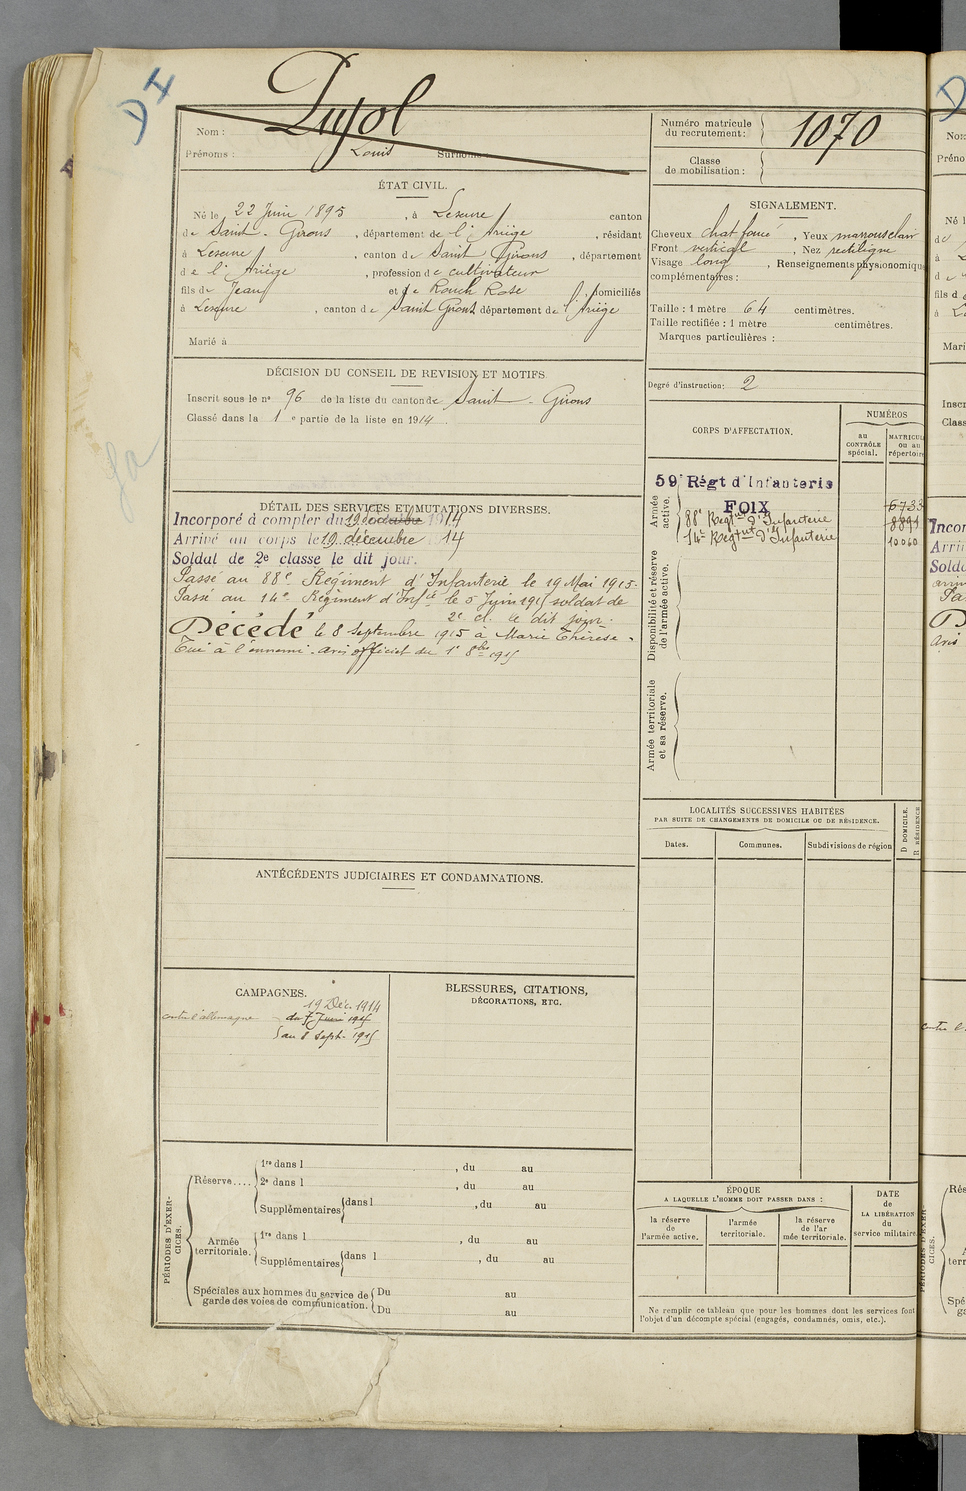 DI
Pujol
Nom :
Prénoms : Louis Surnoms :
Numéro matricule du recrutement : 1070
Classe de mobilisation :
ÉTAT CIVIL.
Né le 22 Juin 1895, à Lescure canton
de Saint-Girons, département de l'Ariège, résidant
à Lescure, canton de Saint Girons, département
de l'Ariège, profession de cultivateur
fils de Jean et de Rouch Rose, domiciliés
à Lescure, canton de Saint Girons département de l'Ariège
Marié à
SIGNALEMENT.
Cheveux chat foncé, Yeux marrons clair
Front vertical, Nez rectiligne
Visage long, Renseignements physionomiques
complémentaires :
Taille : 1 mètre 64 centimètres.
Taille rectifiée : 1 mètre centimètres.
Marques particulières :
DÉCISION DU CONSEIL DE REVISION ET MOTIFS.
Inscrit sous le no 96 de la liste du canton de Saint-Girons
Classé dans la 1 e partie de la liste en 1914
Degré d'instruction : 2
CORPS D'AFFECTATION.
NUMÉROS
au CONTRÔLE spécial.
MATRICULE ou au répertoire
Armée active.
59e Régt d'Infanterie
FOIX
6733
88e Regimt d'Infanterie 8891
14e Regtmt d'Infanterie 10060
Disponibilité et réserve de l'armée active.
Armée territoriale et sa réserve.
DÉTAIL DES SERVICES ET MUTATIONS DIVERSES.
Incorporé à compter du 19 décembre 1914
Arrivé au corps le 19 décembre 14
Soldat de 2e classe le dit jour.
Passé au 88e Régiment d'Infanterie le 19 Mai 1915.
Passé au 14e Régiment d'Infie le 5 Juin 1915 soldat de
2e cl. le dit jour.
Décédé le 8 Septembre 1915 à Marie Thérèse.
Tué à l'ennemi. avis officiel du 1er 8bre 1915
LOCALITÉS SUCCESSIVES HABITÉES
PAR SUITE DE CHANGEMENTS DE DOMICILE OU DE RÉSIDENCE.
Dates.
Communes.
Subdivisions de région
D DOMICILE.
R RÉSIDENCE
ANTÉCÉDENTS JUDICIAIRES ET CONDAMNATIONS.
CAMPAGNES.
19 Déc. 1914
contre l'allemagne du 5 Juin 1915
au 8 Sept. 1915
BLESSURES, CITATIONS,
DÉCORATIONS, ETC.
PÉRIODES D'EXERCICES.
Réserve....
1re dans l , du au
2e dans l , du au
Supplémentaires dans l , du au
Armée territoriale.
1re dans l , du au
Supplémentaires dans l , du au
Spéciales aux hommes du service de garde des voies de communication.
Du au
Du au
ÉPOQUE
A LAQUELLE L'HOMME DOIT PASSER DANS :
la réserve de l'armée active.
l'armée territoriale.
la réserve de l'armée territoriale.
DATE de LA LIBÉRATION du service militaire.
Ne remplir ce tableau que pour les hommes dont les services font
l'objet d'un décompte spécial (engagés, condamnés, omis, etc.).